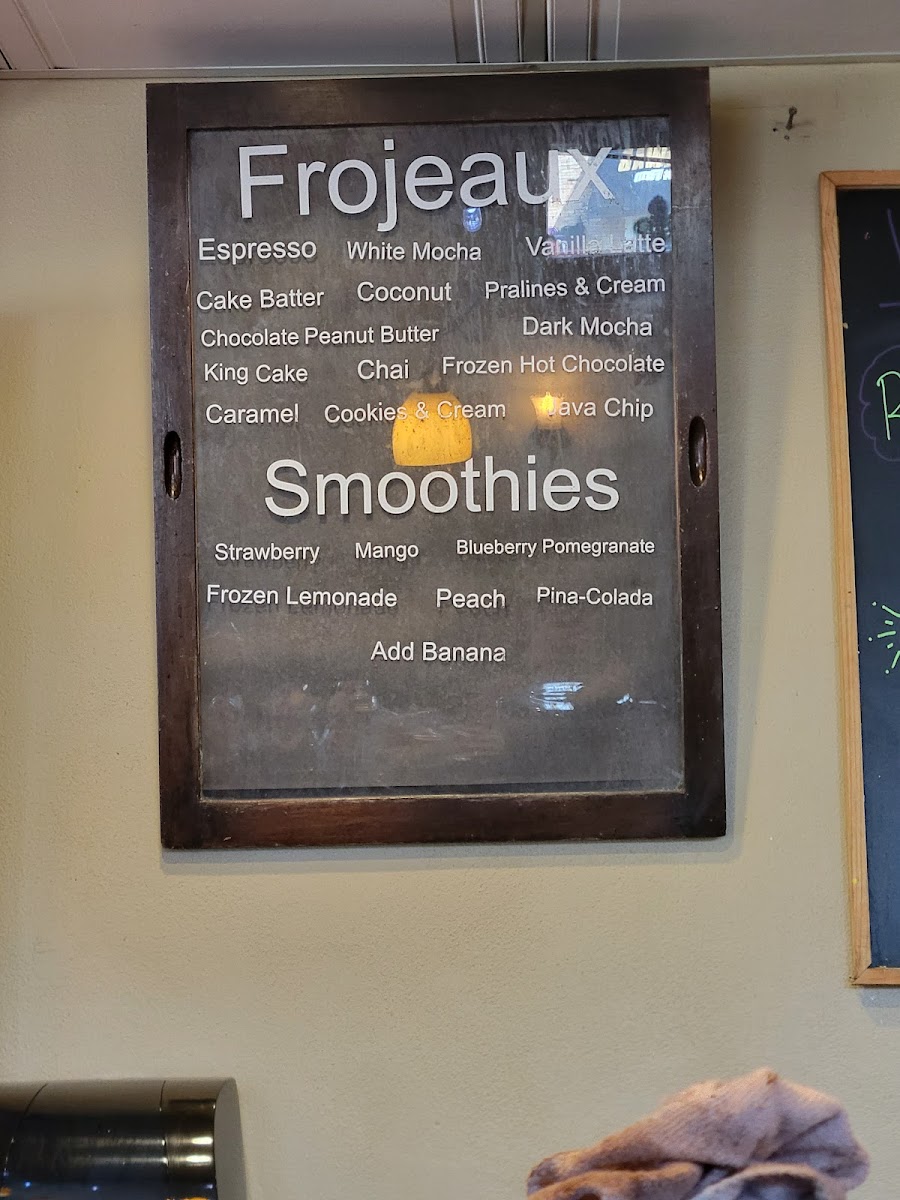 Frojeaux
Espresso White Mocha Vanilla Latte
Cake Batter Coconut Pralines & Cream
Chocolate Peanut Butter Dark Mocha
King Cake Chai Frozen Hot Chocolate
Caramel Cookies & Cream Java Chip
Smoothies
Strawberry Mango Blueberry Pomegranate
Frozen Lemonade Peach Pina-Colada
Add Banana